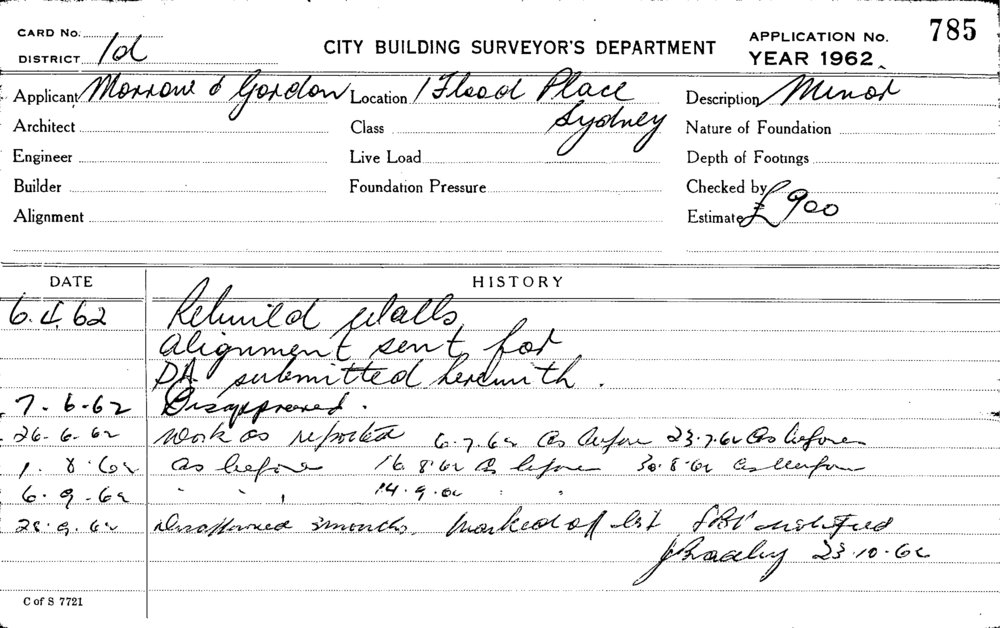 CARD No.
DISTRICT 1d
CITY BUILDING SURVEYOR'S DEPARTMENT
APPLICATION No. 785
YEAR 1962
Applicant Morrow & Gordon Location 1 Flood Place Description Minor
Architect Class Sydney Nature of Foundation
Engineer Live Load Depth of Footings
Builder Foundation Pressure Checked by
Alignment Estimate £900
DATE HISTORY
6.4.62 Rebuild walls
alignment sent for
DA submitted herewith.
7.6.62 Disapproved.
26.6.62 Work as reported 6.7.62 As before 23.7.62 As before
1.8.62 as before 16.8.62 As before 30.8.62 as before
6.9.62 " " 14.9.62 " "
28.9.62 Disapproved 3 months. Marked off list notified
JBradley 23.10.62
C of S 7721